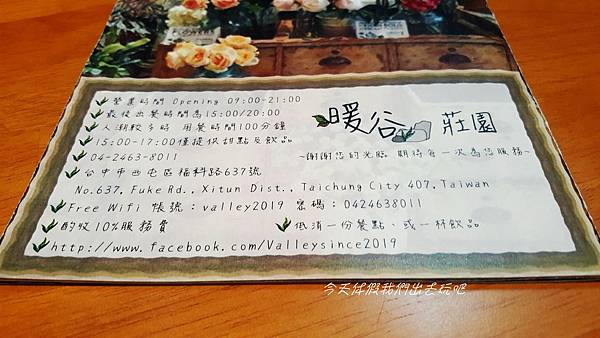 營業時間 Opening 09:00-21:00
最後出餐時間為15:00/20:00
人潮較多時 用餐時間100分鐘
15:00-17:00僅提供甜點及飲品
04-2463-8011
台中市西屯區福科路637號
No.637, Fuke Rd., Xitun Dist., Taichung City 407, Taiwan
Free Wifi 帳號：valley2019 密碼：0424638011
酌收10%服務費
低消一份餐點 或一杯飲品
http://www.facebook.com/Valleysince2019
暖谷 莊園
~謝謝您的光臨 期待每一次為您服務~
今天休假我們出去玩吧